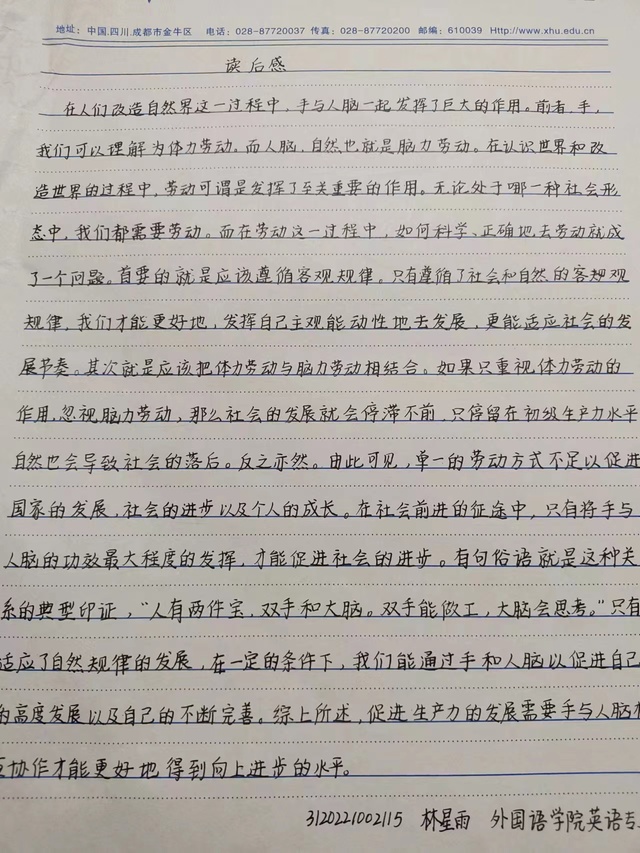 地址: 中国.四川.成都市金牛区 电话: 028-87720037 传真: 028-87720200 邮编: 610039 Http://www.xhu.edu.cn
读后感
在人们改造自然界这一过程中,手与人脑一起发挥了巨大的作用。前者,手,
我们可以理解为体力劳动。而人脑,自然也就是脑力劳动。在认识世界和改
造世界的过程中,劳动可谓是发挥了至关重要的作用。无论处于哪一种社会形
态中,我们都需要劳动。而在劳动这一过程中,如何科学、正确地去劳动就成
了一个问题。首要的就是应该遵循客观规律。只有遵循了社会和自然的客观观
规律,我们才能更好地,发挥自己主观能动性地去发展,更能适应社会的发
展节奏。其次就是应该把体力劳动与脑力劳动相结合。如果只重视体力劳动的
作用,忽视脑力劳动,那么社会的发展就会停滞不前,只停留在初级生产力水平
自然也会导致社会的落后。反之亦然。由此可见,单一的劳动方式不足以促进
国家的发展,社会的进步以及个人的成长。在社会前进的征途中,只有将手与
人脑的功效最大程度的发挥,才能促进社会的进步。有句俗语就是这种关
系的典型印证,“人有两件宝,双手和大脑。双手能做工,大脑会思考。”只有
适应了自然规律的发展,在一定的条件下,我们能通过手和人脑以促进自己
的高度发展以及自己的不断完善。综上所述,促进生产力的发展需要手与人脑相
互协作才能更好地得到向上进步的水平。
3120221002115 林星雨 外国语学院英语专